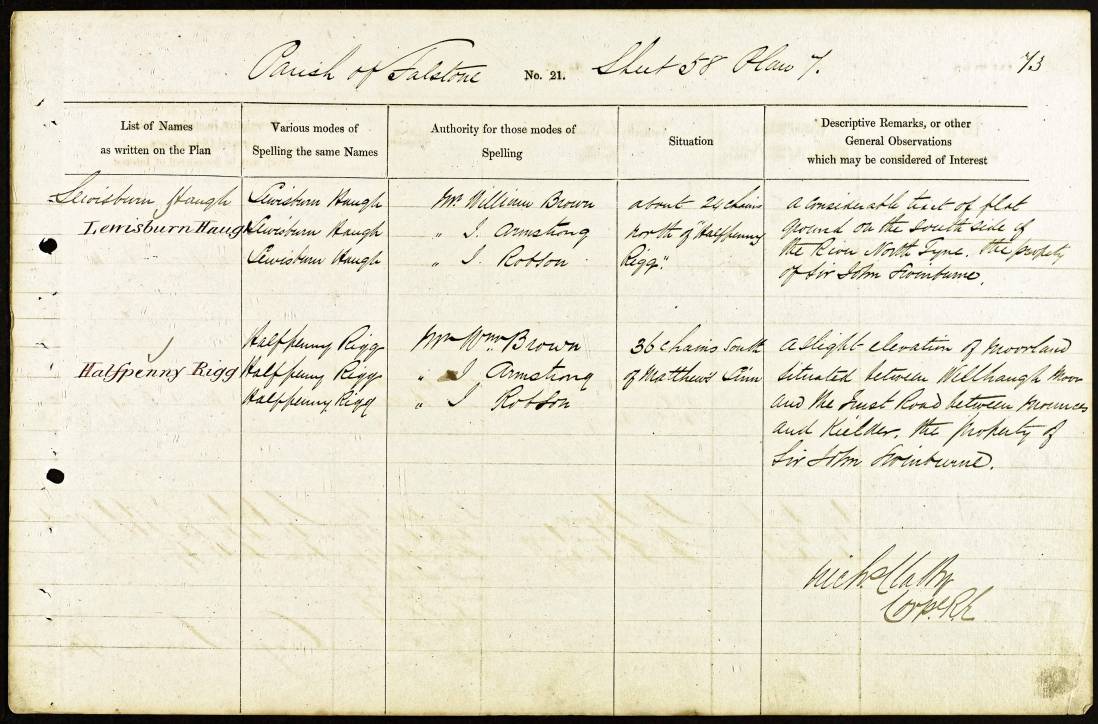 Parish of Falstone No. 21. Sheet 58 Plan 7. 73
List of Names
as written on the Plan
Various modes of
Spelling the same Names
Authority for those modes of
Spelling
Situation
Descriptive Remarks, or other
General Observations
which may be considered of Interest
Lewisburn Haugh
Lewisburn Haugh
Lewisburn Haugh
Lewisburn Haugh
Lewisburn Haugh
Mr. William Brown
" J. Armstrong
" J. Robson
about 24 chains
north of "Halfpenny
Rigg".
A considerable tract of flat
ground on the South side of
the River North Tyne. the property
of Sir John Swinburne.
Halfpenny Rigg
Halfpenny Rigg
Halfpenny Rigg
Halfpenny Rigg
Mr. Wm. Brown
" J Armstrong
" J Robson
36 chains South
of Matthews Linn
A slight elevation of Moorland
situated between Willhaugh Moor
and the Trust Road between Mounces
and Kielder. the property of
Sir John Swinburne.
Corpl. R.E.